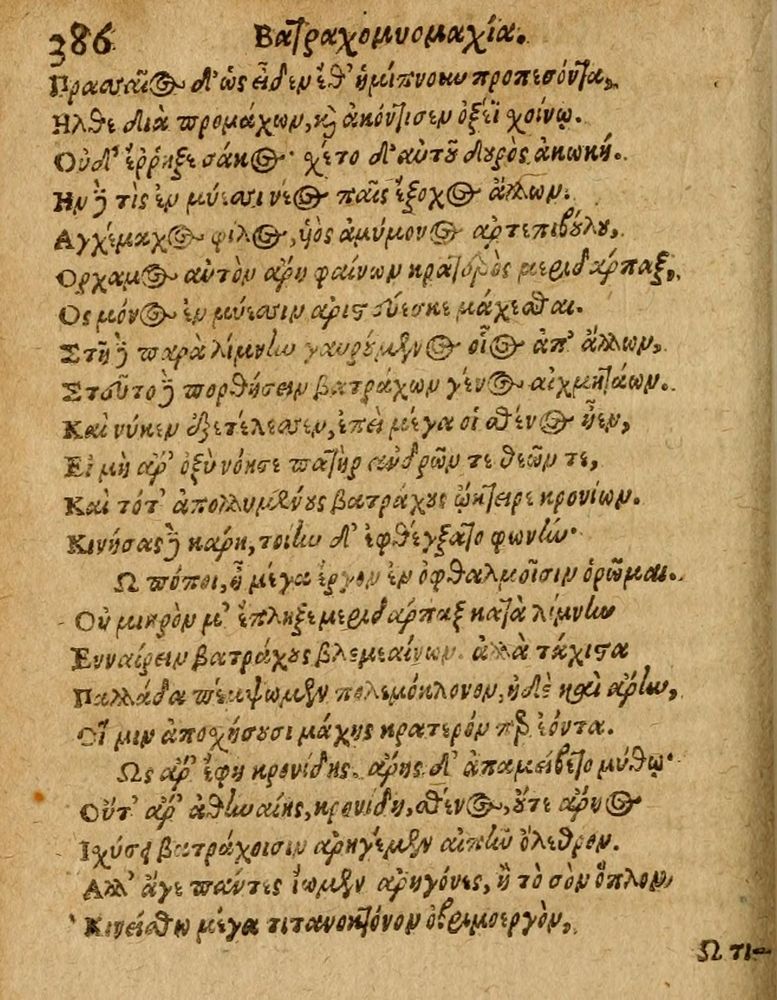 386 Βατραχομυομαχία.
Πρασσαῖος δ' ὡς εἶδεν ἔθ' ἡμίπνουν προπεσόντα,
Ηλθε διὰ προμάχων, καὶ ἀκόντισεν ὀξέϊ χοίνῳ.
Οὐδ' ἔῤῥηξε σάκος· χέτο δ' αὐτοῦ δουρὸς ἀκωκή.
Ην δὲ τὶς ἐν μύεσσι νέος παῖς ἔξοχος ἄλλων.
Αγχέμαχος φίλος, ὑὸς ἀμύμονος ἀρτεπιβούλου,
Ορχαμος αὐτὸν ἄρη φαίνων κρατερὸς μεριδάρπαξ,
Ος μόνος ἐν μύεσσιν ἀριστεύεσκε μάχεσθαι.
Στῆ δὲ παρὰ λίμνην γαυρούμενος οἶος ἀπ' ἄλλων,
Στεῦτο δὲ πορθήσειν βατράχων γένος αἰχμητάων.
Καὶ νύκεν ἐξετέλεσσεν, ἐπεὶ μέγα οἱ σθένος ἦεν,
Εἰ μὴ ἄρ' ὀξὺ νόησε πατὴρ ἀνδρῶν τε θεῶν τε,
Καὶ τότ' ἀπολλυμένους βατράχους ᾤκτειρε κρονίων.
Κινήσας δὲ κάρη, τοίην δ' ἐφθέγξατο φωνήν·
Ω πόποι, ἦ μέγα ἔργον ἐν ὀφθαλμοῖσιν ὁρῶμαι.
Οὐ μικρὸν μ' ἔπληξε μεριδάρπαξ κατὰ λίμνην
Ενναίρειν βατράχους βλεμεαίνων. ἀλλὰ τάχιστα
Παλλάδα πέμψωμεν πολεμόκλονον, ἠδὲ καὶ ἄρην,
Οἵ μιν ἀποσχήσουσι μάχης κρατερόν περ ἐόντα.
Ως ἄρ' ἔφη κρονίδης. ἄρης δ' ἀπαμείβετο μύθῳ·
Οὔτ' ἄρ' ἀθηναίης, κρονίδη, σθένος, οὔτε ἄρηος
Ιχύσει βατράχοισιν ἀρηγέμεν αἰπὺν ὄλεθρον.
Αλλ' ἄγε πάντες ἴωμεν ἀρηγόνες, ἢ τὸ σὸν ὅπλον
Κινείσθω μέγα τιτανοκτόνον ὀβριμοεργὸν,
Ω τι-